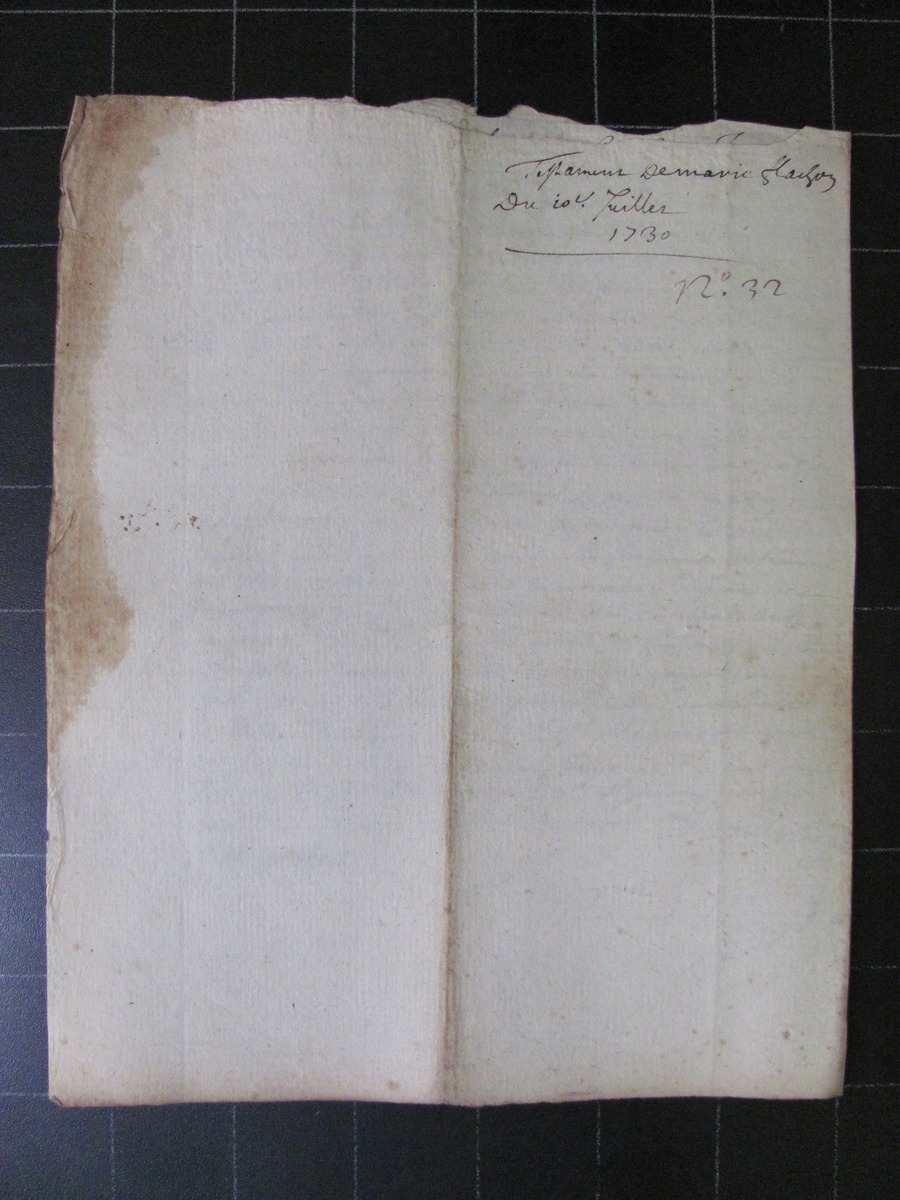 Testament De marie flachon
Du 10e. Juillet
1730
N.º 32